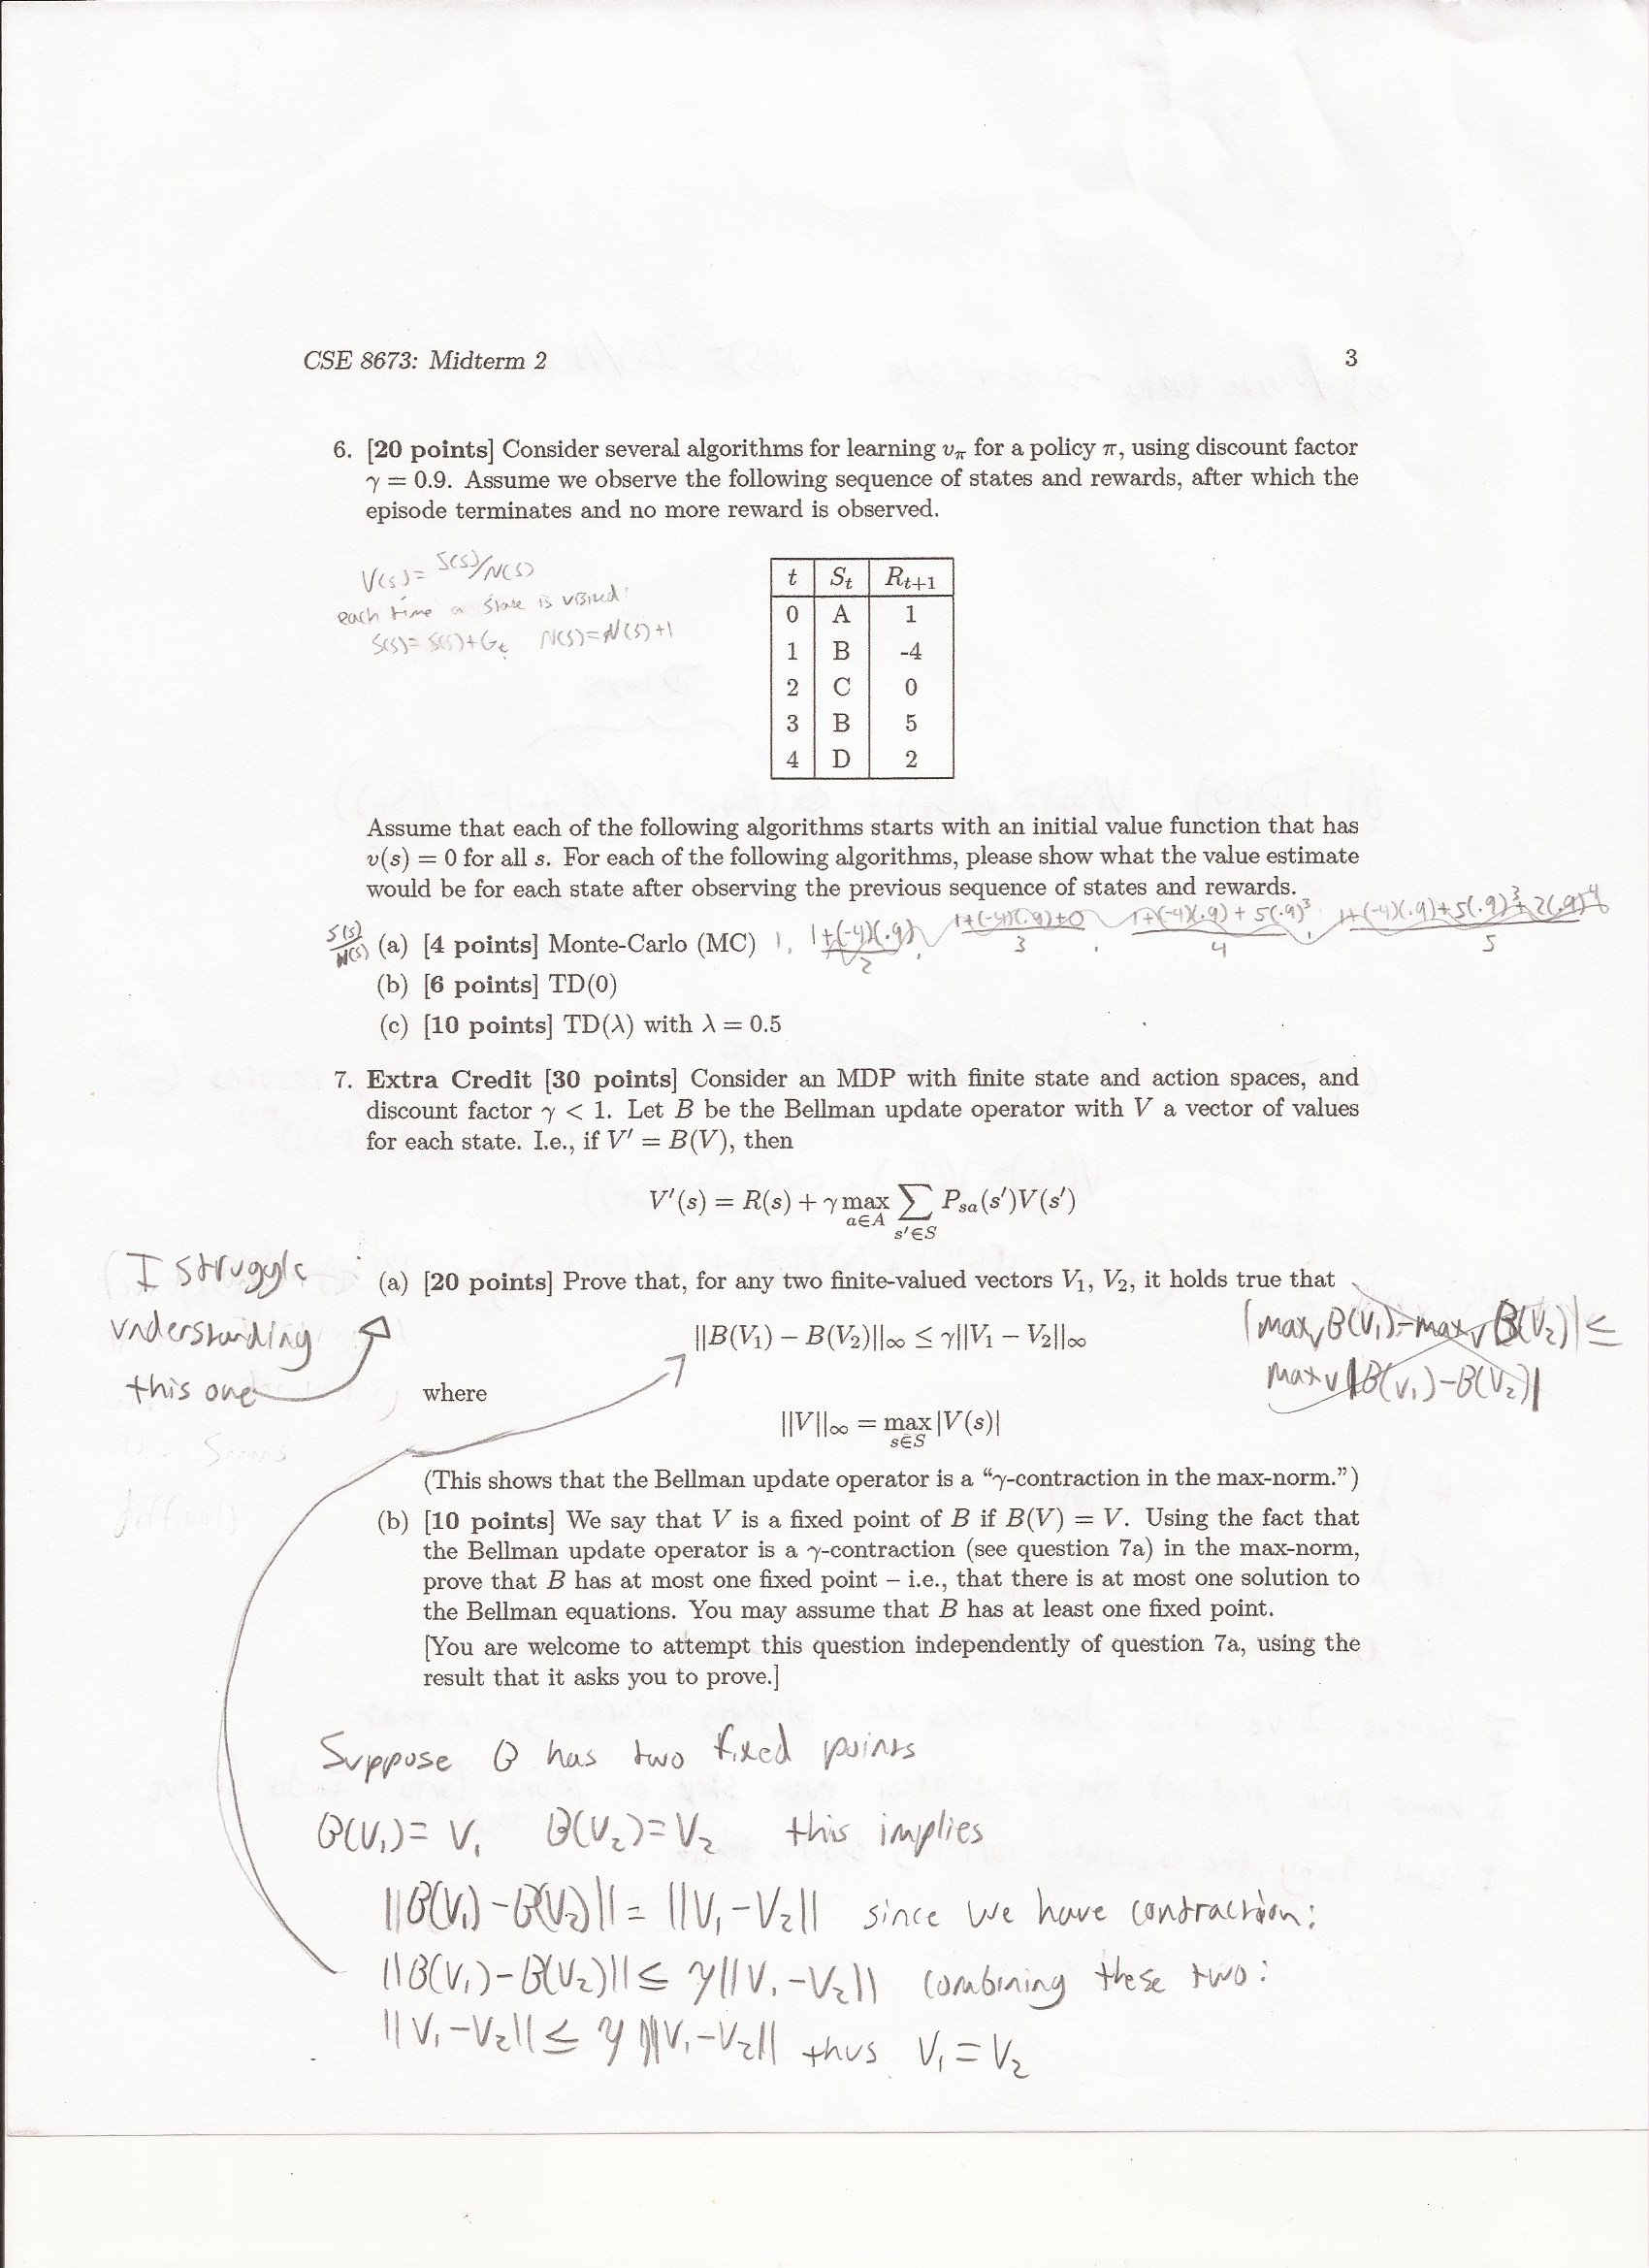 CSE 8673: Midterm 2 3
6. [20 points] Consider several algorithms for learning vπ for a policy π, using discount factor
γ = 0.9. Assume we observe the following sequence of states and rewards, after which the
episode terminates and no more reward is observed.
V(s) = S(s)/N(s)
each time a state is visited:
S(s) = S(s)+Gt N(s) = N(s)+1
t St Rt+1
0 A 1
1 B -4
2 C 0
3 B 5
4 D 2
Assume that each of the following algorithms starts with an initial value function that has
v(s) = 0 for all s. For each of the following algorithms, please show what the value estimate
would be for each state after observing the previous sequence of states and rewards.
S(s)/N(s) (a) [4 points] Monte-Carlo (MC) 1, (1+(-4)(.9))/2, (1+(-4)(.9)+0)/3, (1+(-4)(.9)+5(.9)^3)/4, (1+(-4)(.9)+5(.9)^3+2(.9)^4)/5
(b) [6 points] TD(0)
(c) [10 points] TD(λ) with λ = 0.5
7. Extra Credit [30 points] Consider an MDP with finite state and action spaces, and
discount factor γ < 1. Let B be the Bellman update operator with V a vector of values
for each state. I.e., if V′ = B(V), then
V′(s) = R(s) + γ max a∈A ∑ s′∈S Psa(s′)V(s′)
I struggle
understanding
this one
(a) [20 points] Prove that, for any two finite-valued vectors V1, V2, it holds true that
||B(V1) − B(V2)||∞ ≤ γ||V1 − V2||∞
|maxv B(V1) - maxv B(V2)| ≤
maxv |B(V1) - B(V2)|
where
||V||∞ = max s∈S |V(s)|
(This shows that the Bellman update operator is a “γ-contraction in the max-norm.”)
(b) [10 points] We say that V is a fixed point of B if B(V) = V. Using the fact that
the Bellman update operator is a γ-contraction (see question 7a) in the max-norm,
prove that B has at most one fixed point – i.e., that there is at most one solution to
the Bellman equations. You may assume that B has at least one fixed point.
[You are welcome to attempt this question independently of question 7a, using the
result that it asks you to prove.]
Suppose B has two fixed points
B(V1) = V1 B(V2) = V2 this implies
||B(V1) - B(V2)|| = ||V1 - V2|| since we have contraction:
||B(V1) - B(V2)|| ≤ γ||V1 - V2|| combining these two:
||V1 - V2|| ≤ γ||V1 - V2|| thus V1 = V2